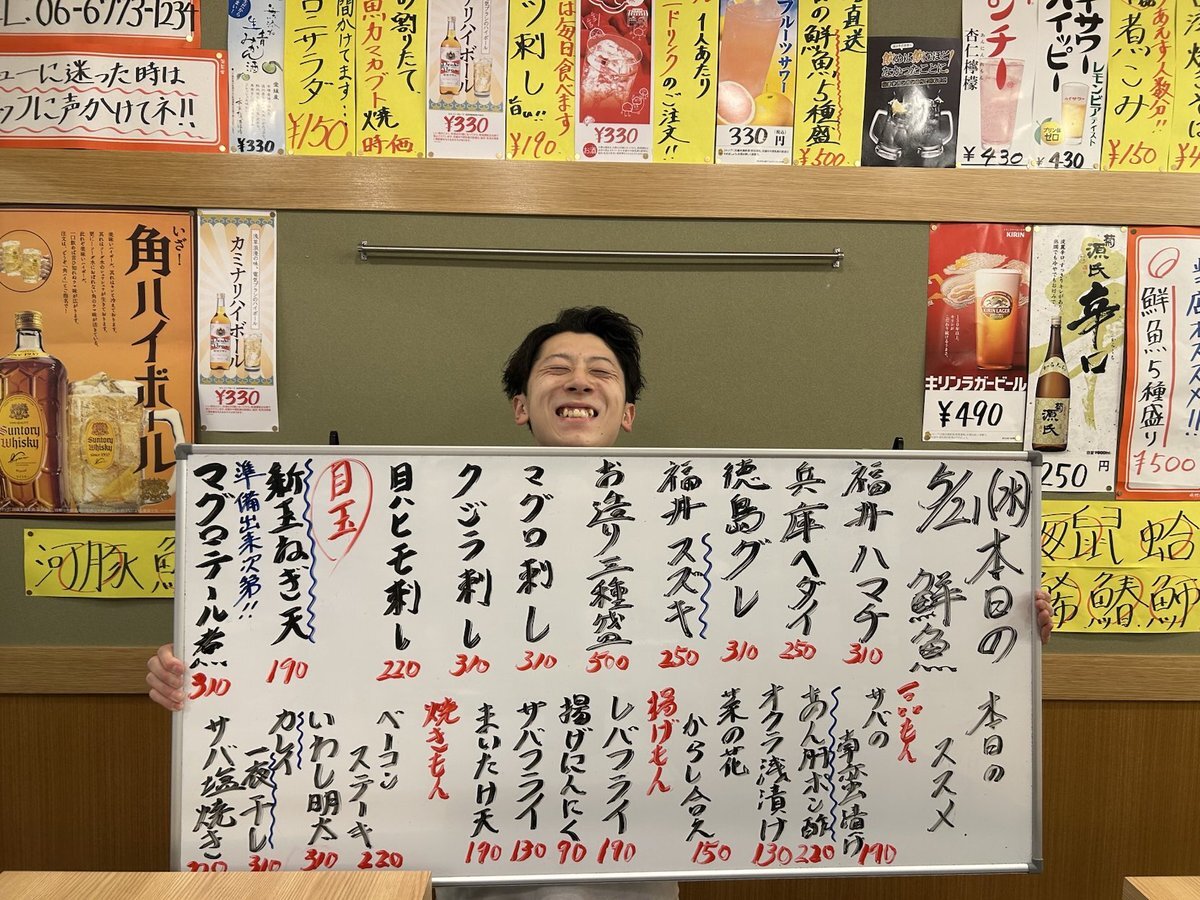 06-6773-1234
ューに迷った時は
ッフに声かけてネ!!
¥330
ロニサラダ
¥150
間かけてます
の割りたて
魚カマカブト焼
時価
ナリハイボール
¥330
ツ刺し
旨い!!
¥190
は毎日食べます
¥330
1人あたり
1ドリンクのご注文!!
フルーツサワー
330円
直送
の鮮魚5種盛
¥500
ンチー
杏仁檸檬
¥430
イサワー
ハッピー
レモンビアテイスト
プリン体ゼロ
¥430
煮こみ
¥150
あえず人数分!!
いざ!
角ハイボール
SUNTORY WHISKY
浅草浪漫の味、電気ブランのハイボール
カミナリハイボール
¥330
KIRIN
KIRIN LAGER
キリンラガービール
¥490
菊源氏
辛口
源氏
250円
当店オススメ!!
鮮魚5種盛り
¥500
河豚
鼠
蛤
鰆
鰤
5/21(水)本日の鮮魚
福井ハマチ 310
兵庫ヘダイ 250
徳島グレ 310
福井スズキ 250
お造り三種盛 500
マグロ刺し 310
クジラ刺し 310
目ハモ刺し 220
目玉
新玉ねぎ天 190
準備出来次第!!
マグロテール煮 310
本日のススメ
一品もん
サバの南蛮漬け 190
あん肝ポン酢 220
オクラ浅漬け 130
菜の花からし合え 150
揚げもん
レバフライ 190
揚げにんにく 90
ザバフライ 130
まいたけ天 190
焼きもん
ベーコンステーキ 220
いわし明太 310
カレイ一夜干し 310
サバ塩焼き